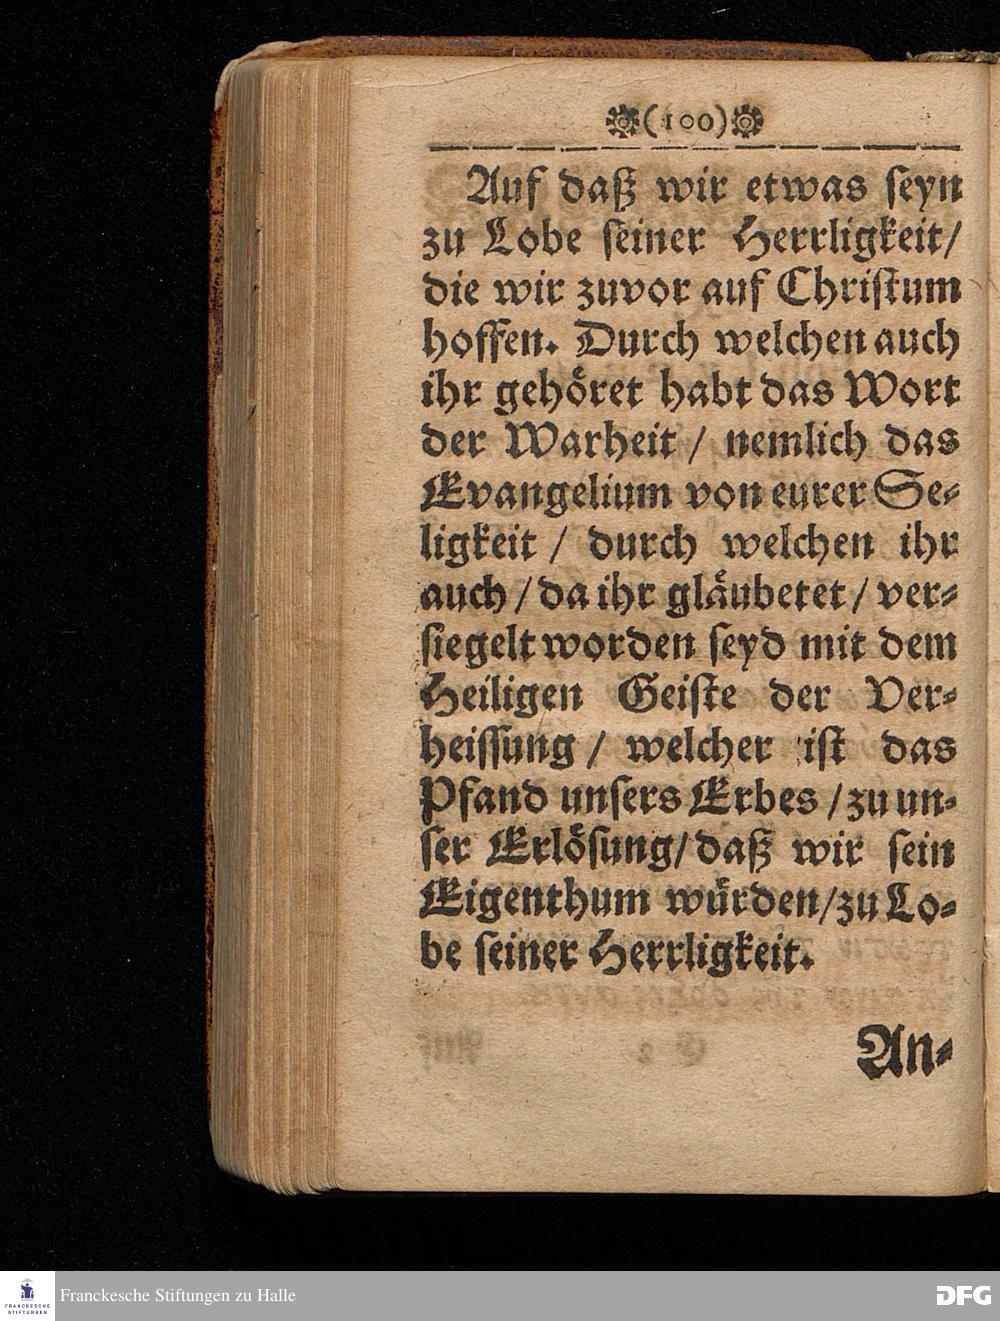 (100)
Auf daß wir etwas seyn
zu Lobe seiner Herrligkeit/
die wir zuvor auf Christum
hoffen. Durch welchen auch
ihr gehöret habt das Wort
der Warheit / nemlich das
Evangelium von eurer Se-
ligkeit / durch welchen ihr
auch / da ihr gläubetet / ver-
siegelt worden seyd mit dem
Heiligen Geiste der Ver-
heissung / welcher ist das
Pfand unsers Erbes / zu un-
ser Erlösung/ daß wir sein
Eigenthum würden/zu Lo-
be seiner Herrligkeit.
An-
FRANCKESCHE
STIFTUNGEN
Franckesche Stiftungen zu Halle
DFG